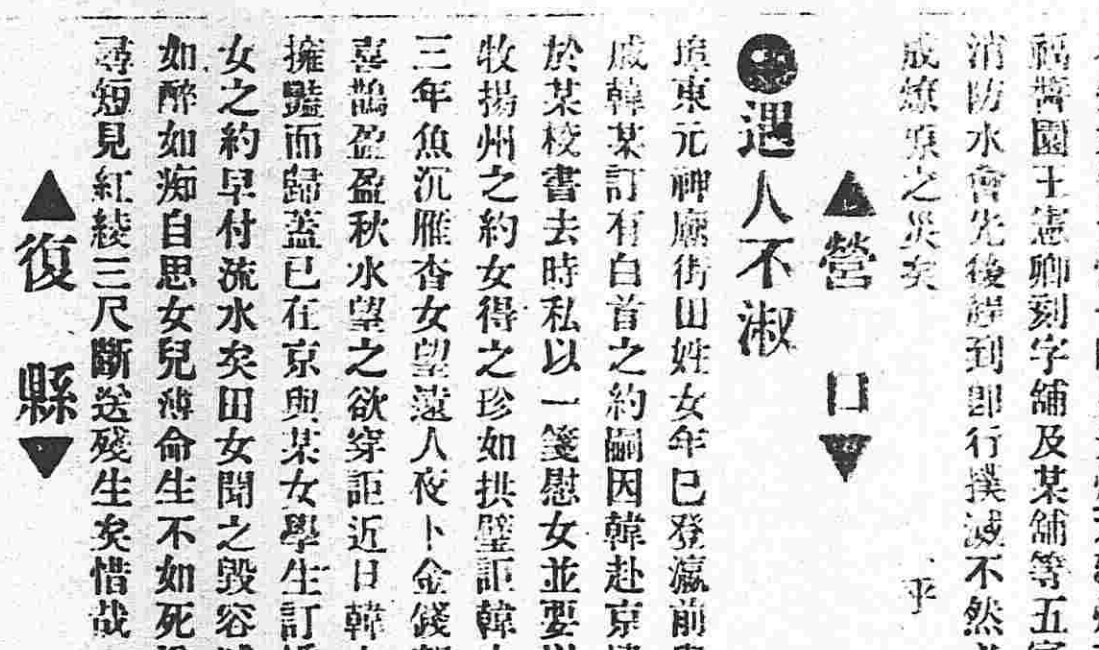 福醬園王憲卿刻字舖及某舖等五家
消防水會先後趕到即行撲滅不然
成燎原之災矣 乎
▲營口▼
●遇人不淑
埠東元神廟街田姓女年已登瀛前與
戚韓某訂有白首之約嗣因韓赴京
於某校書去時私以一箋慰女並要以
牧揚州之約女得之珍如拱璧詎韓
三年魚沉雁杳女望遠人夜卜金錢朝
喜鵲盈盈秋水望之欲穿詎近日韓
擁豔而歸蓋已在京與某女學生訂婚
女之約早付流水矣田女聞之毀容
如醉如痴自思女兒薄命生不如死
尋短見紅綾三尺斷送殘生矣惜哉
▲復縣▼